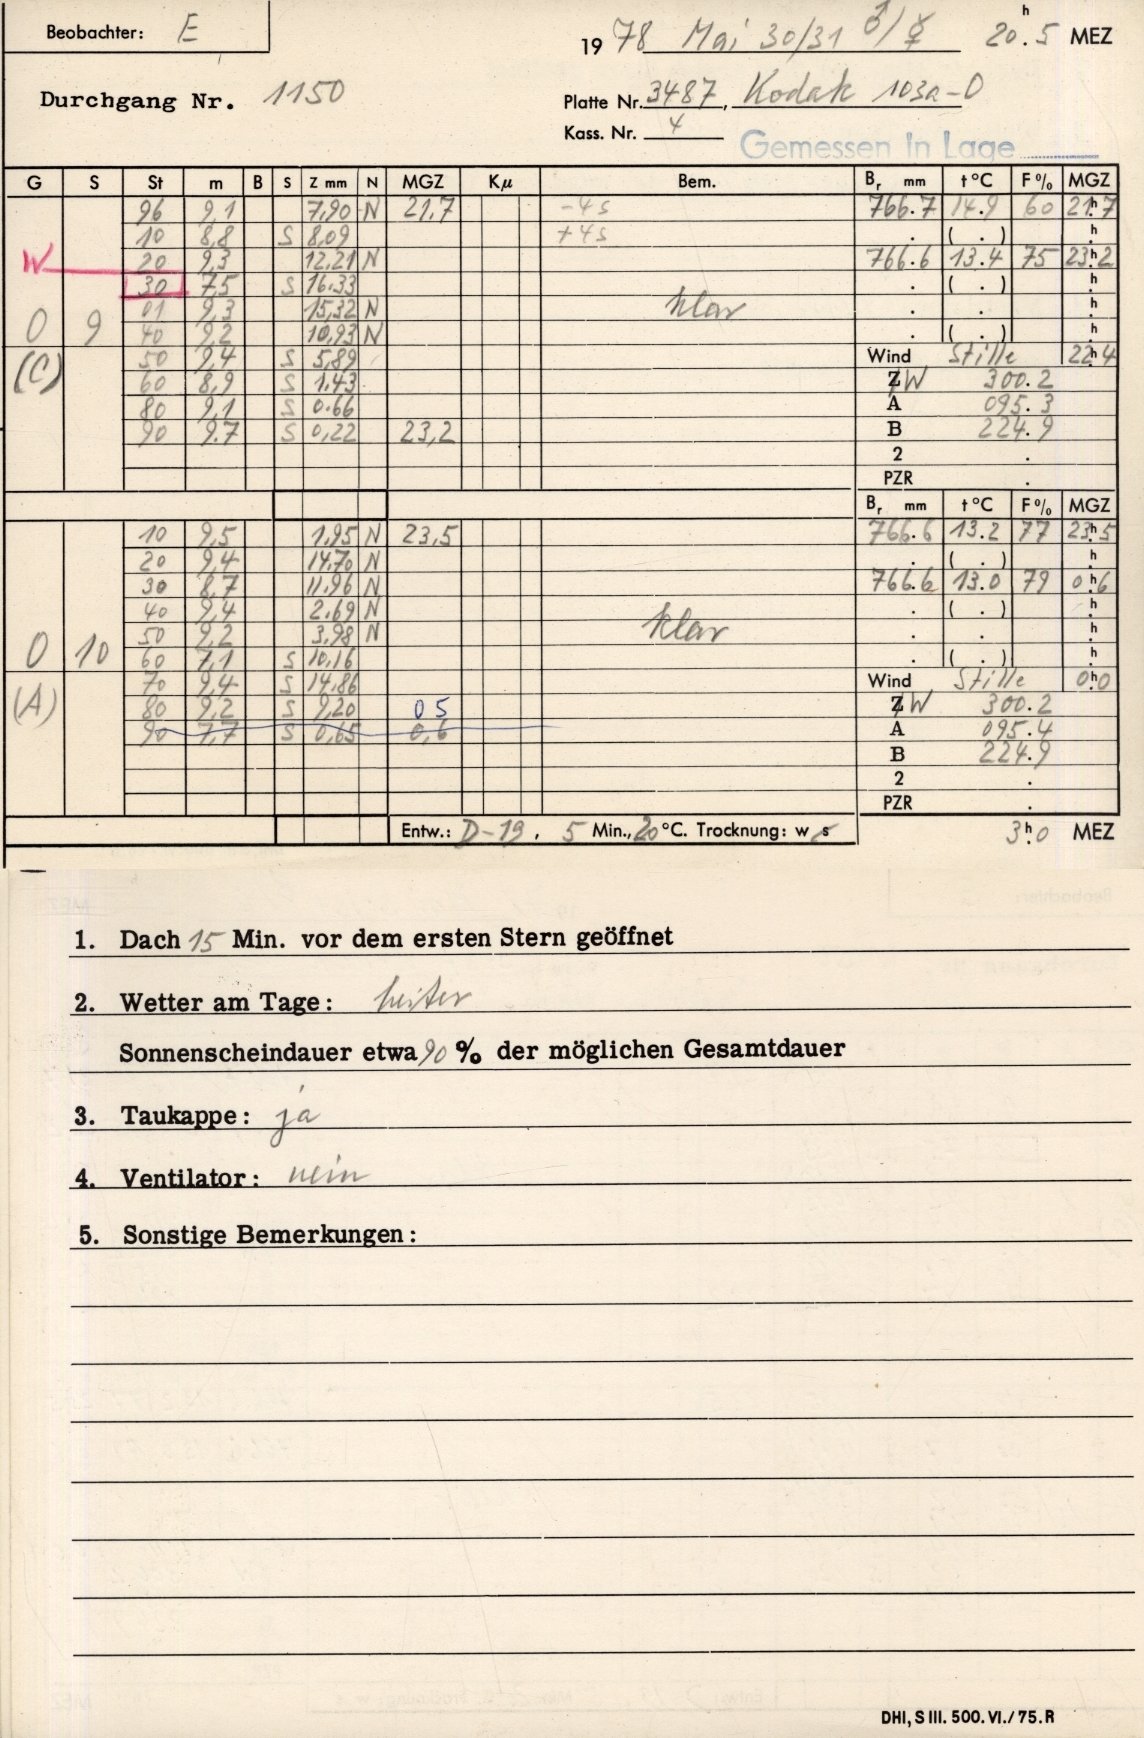 Beobachter: E
19 78 Mai 30/31 ♂/☿ 20h.5 MEZ
Durchgang Nr. 1150
Platte Nr. 3487, Kodak 103a-O
Kass. Nr. 4
Gemessen in Lage
G S St m B S Z mm N MGZ Kμ Bem. Br mm t°C F% MGZ
96 9,1 7,90 N 21,7 -4s 766.7 14.9 60 21h7
10 8,8 S 8,09 +4s . ( . ) h
W 20 9,3 12,21 N 766.6 13.4 75 23h2
30 7,5 S 16,33 . ( . ) h
01 9,3 15,32 N klar . . h
0 9 40 9,2 10,93 N . ( . ) h
(C) 50 9,4 S 5,89 Wind Stille 22h4
60 8,9 S 1,43 Z W 300.2
80 9,1 S 0.66 A 095.3
90 9.7 S 0,22 23,2 B 224.9
2 .
PZR .
Br mm t°C F% MGZ
10 9,5 1,95 N 23,5 766.6 13.2 77 23h5
20 9,4 14,70 N . ( . ) h
30 8,7 11,96 N 766.6 13.0 79 0h6
40 9,4 2.69 N . ( . ) h
50 9,2 3,98 N klar . . h
0 10 60 7,1 S 10,16 . ( . ) h
(A) 70 9,4 S 14,86 Wind Stille 0h0
80 9,2 S 9,20 05 Z W 300.2
90 7,7 S 0,65 0,6 A 095.4
B 224.9
2 .
PZR .
Entw.: D-19, 5 Min., 20°C. Trocknung: w s 3h.0 MEZ
1. Dach 15 Min. vor dem ersten Stern geöffnet
2. Wetter am Tage: heiter
Sonnenscheindauer etwa 90 % der möglichen Gesamtdauer
3. Taukappe: ja
4. Ventilator: nein
5. Sonstige Bemerkungen:
DHI, S III. 500. VI./75. R